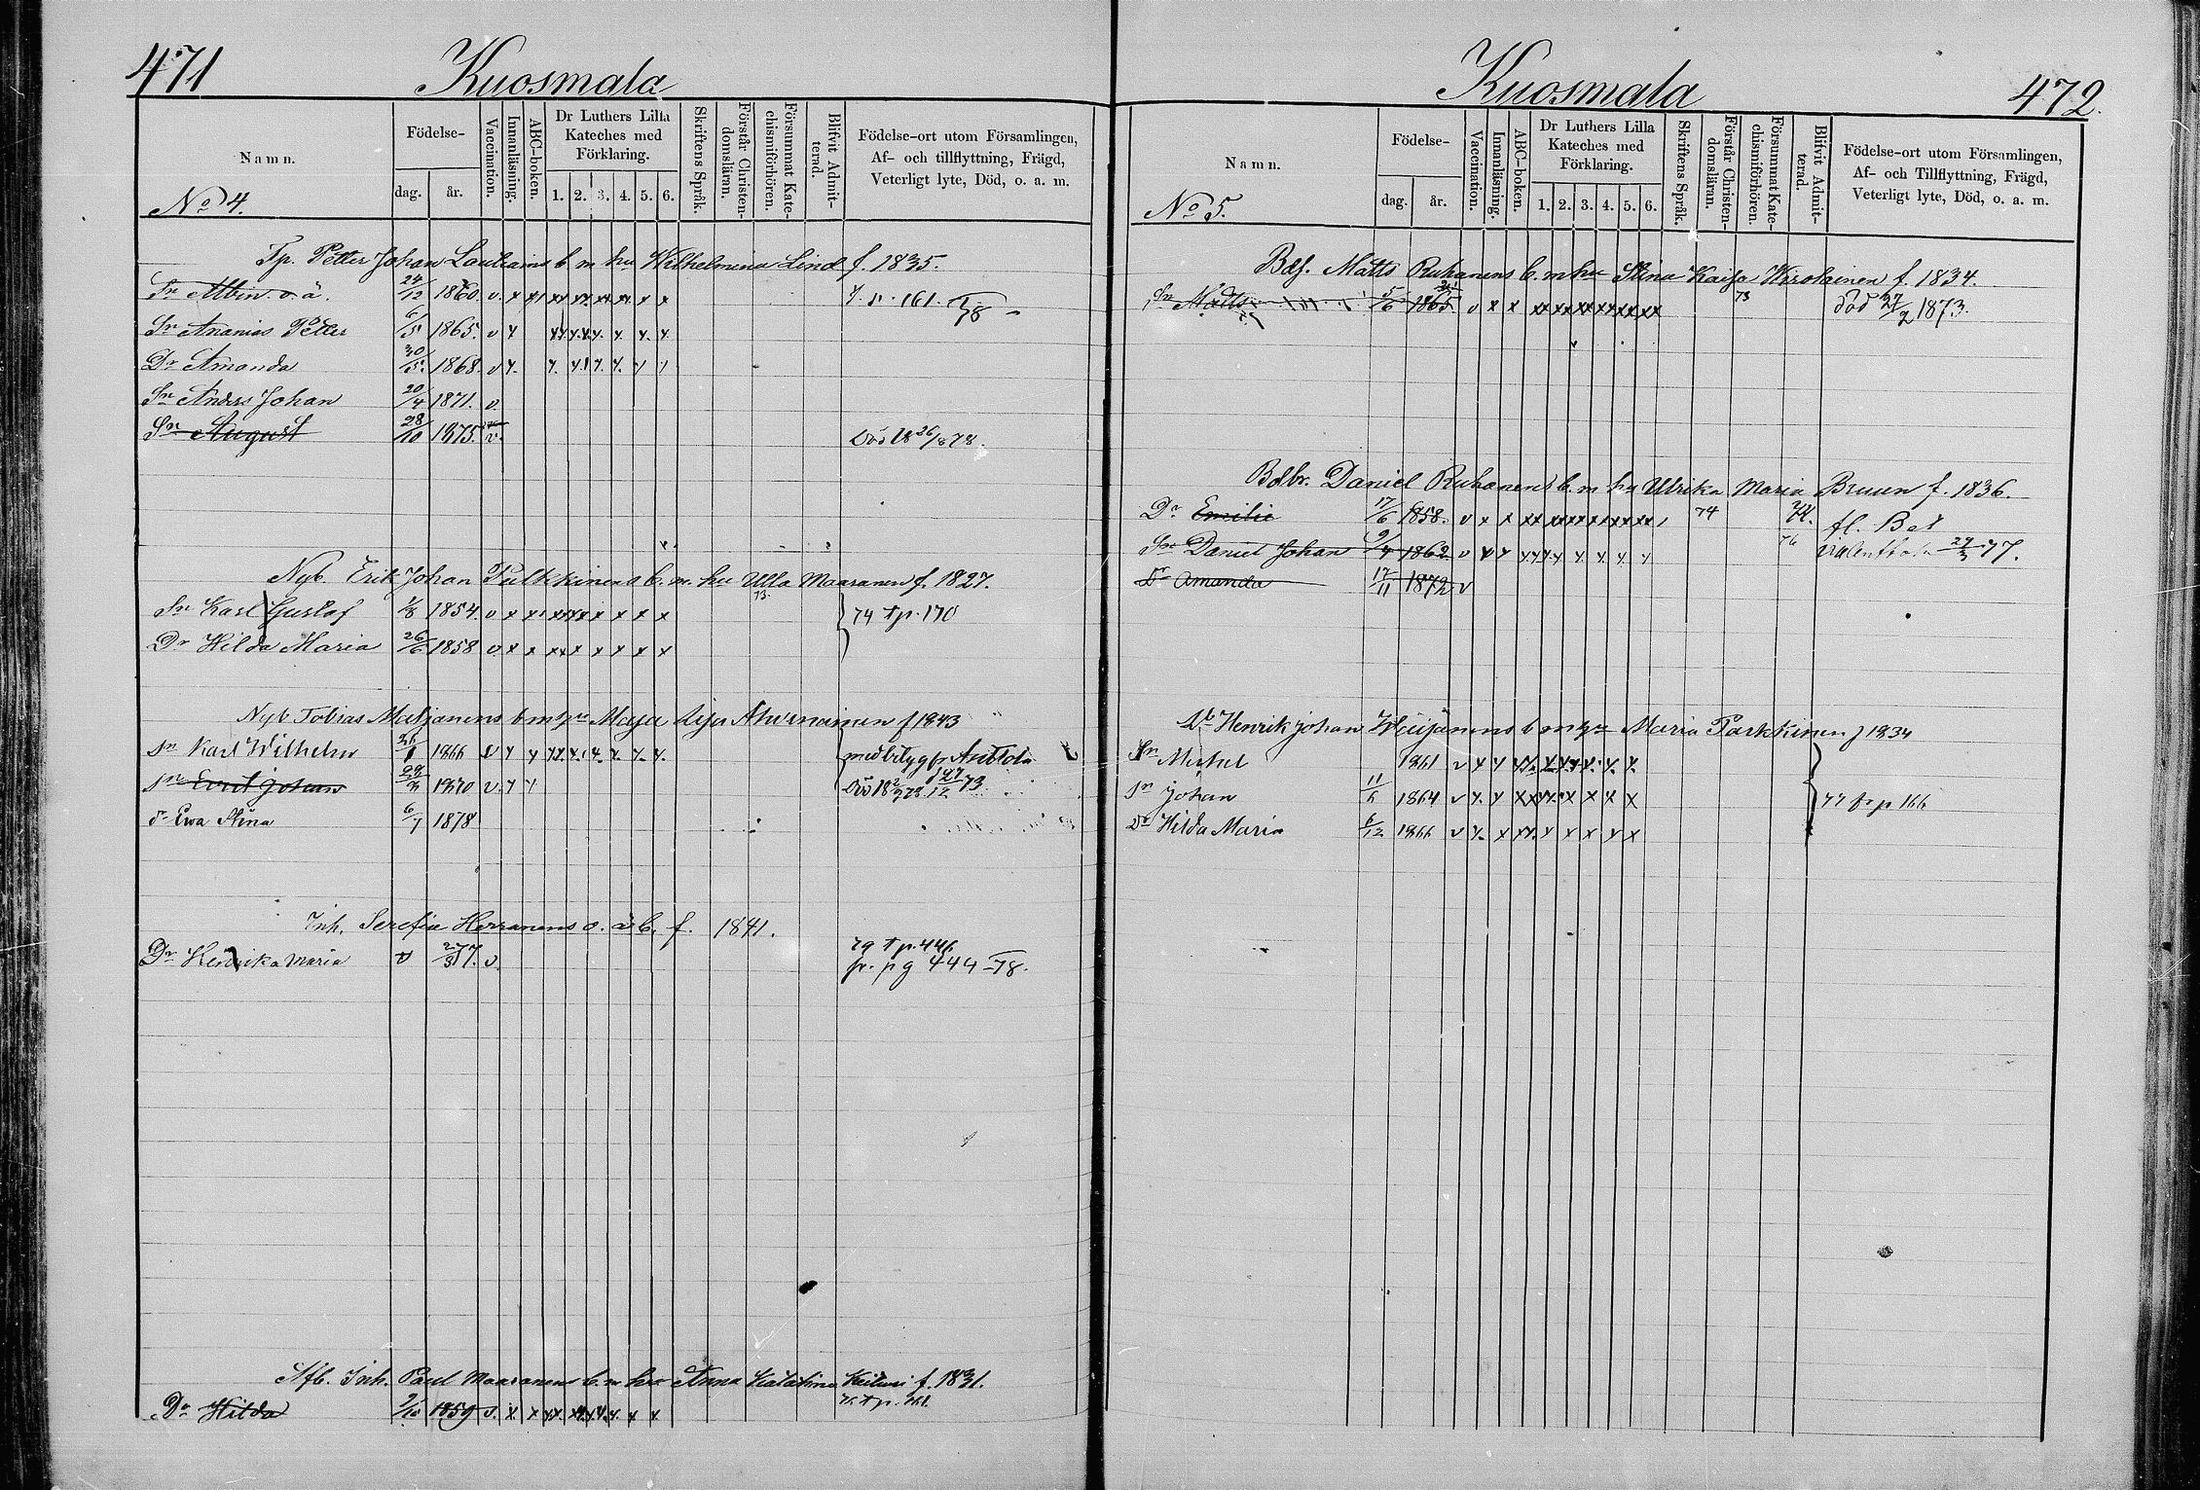 471 Kuosmala
Namn.
No 4.
Födelse-
dag. år.
Vaccination.
Innanläsning.
ABC-boken.
Dr Luthers Lilla
Kateches med
Förklaring.
1. 2. 3. 4. 5. 6.
Skriftens Språk.
Förstår Christen-
domsläran.
Försummat Kate-
chismiförhören.
Blifvit Admit-
terad.
Födelse-ort utom Församlingen,
Af- och tillflyttning, Frägd,
Veterligt lyte, Död, o. a. m.
Tp. Petter Johan b m hu Wilhelmina Lind f. 1835.
Sn Albin o. ä. 24/12 1860. v. x x x x x x x x p. 161. 78
Sn Ananias Petter 6/5 1865. v x x x x x x x
Dr Amanda 30/5 1868. v x x x x x x x
Sn Anders Johan 20/4 1871. v.
Sn August 28/10 1875. v. Död 18 26/8 78.
Nyb. Erik Johan Pulkkinens b. m. hu Ulla Maaranen f. 1827.
Sn Karl Gustaf 1/8 1854. v x x x x x x x x 74 tp. 170
Dr Hilda Maria 26/6 1858 v. x x x x x x x x
Nyb Tobias b m hu Maja f 1843
Sn Karl Wilhelm 1866 v x x x x x x x x med betyg fr
Sn Johan 1870 v x x
Dr Ewa Stina 6/1 1878
Inh. Serefia Herranens o. ä b. f. 1841.
79 tp. 446
Dr Henrika Maria 2/3 77. v. fr. pg 444 -78.
Afb. Inh. Paul Maaranens b. m hu Anna Katarina f. 1831.
Dr Hilda 1859 v. x x x x x x x x
Kuosmala 472.
Namn.
No 5.
Födelse-
dag. år.
Vaccination.
Innanläsning.
ABC-boken.
Dr Luthers Lilla
Kateches med
Förklaring.
1. 2. 3. 4. 5. 6.
Skriftens Språk.
Förstår Christen-
domsläran.
Försummat Kate-
chismiförhören.
Blifvit Admit-
terad.
Födelse-ort utom Församlingen,
Af- och Tillflyttning, Frägd,
Veterligt lyte, Död, o. a. m.
Bdf. Matts Ruhanens b. m hu Stina Kaisa f. 1834.
Sn Matts 5/6 1865. v x x xx xx xx xx xx xx 73 död 27/2 1873.
Bdbr. Daniel Ruhanens b. m hu Ulrika Maria Bruun f. 1836.
Dr Emilie 17/6 1858. v x x xx xx xx xx xx xx 74 fl. Bet
Sn Daniel Johan 9/4 1862 v x x x x x x x x 76 77.
Dr Amanda 17/11 1872 v
Henrik Johan b m hu Maria Parkkinen f 1834
Sn Mickel 1861 v x x x x x x x x
Sn Johan 11/6 1864 v x x x x x x x x 77 fr p 166
Dr Hilda Maria 6/12 1866 v x x x x x x x x